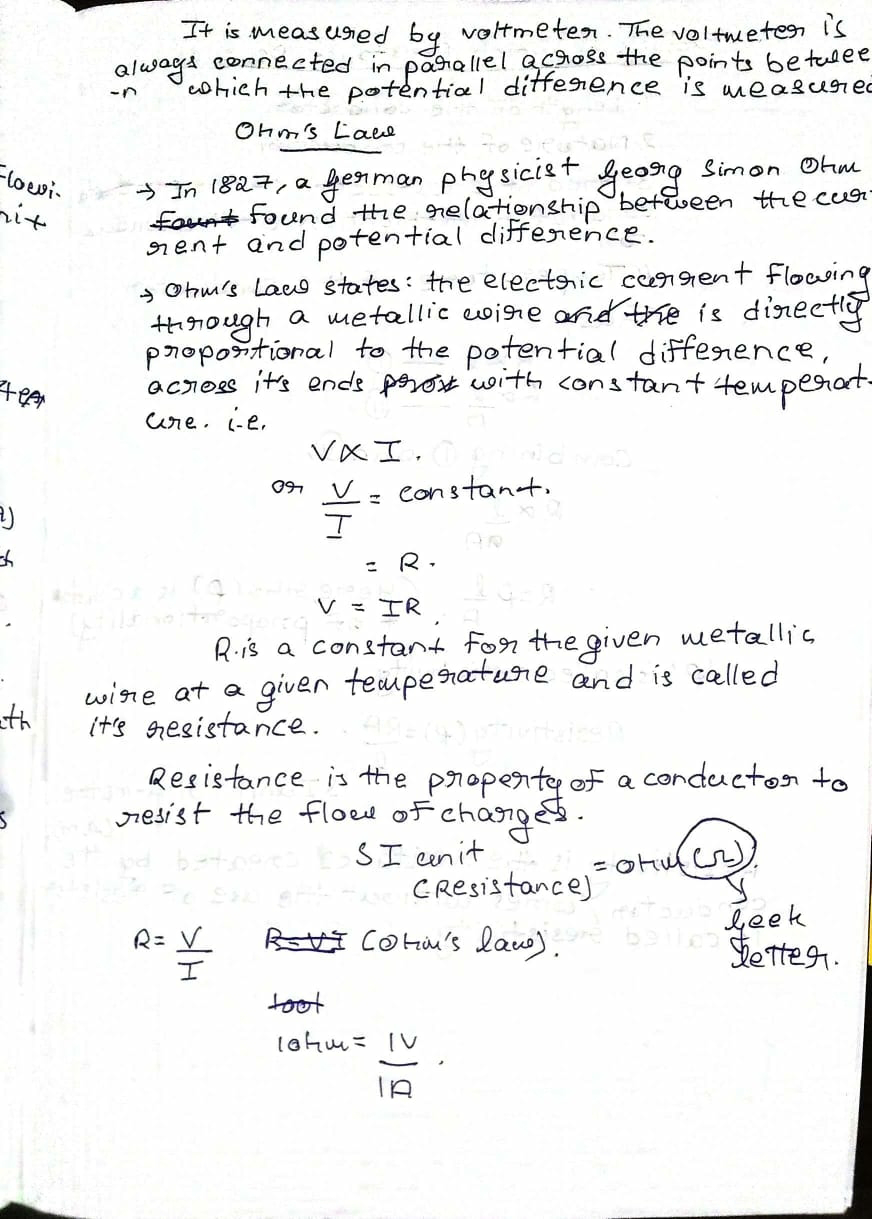 It is measured by voltmeter. The voltmeter is
always connected in parallel across the points betwee
-n which the potential difference is measured
Ohm's Law
Flowi.
→ In 1827, a german physicist Georg Simon Ohm
found found the relationship between the cur
rent and potential difference.
→ Ohm's Law states: the electric current flowing
through a metallic wire and the is directly
proportional to the potential difference,
across it's ends prox with constant temperat-
ure. i.e.
V∝I.
or V/I = constant.
= R.
V = IR
R.is a constant for the given metallic
wire at a given temperature and is called
it's resistance.
Resistance is the property of a conductor to
resist the flow of charges.
SI unit
(Resistance) = ohm (Ω).
Geek
letter.
R= V/I R=VI (Ohm's law).
1ohm = 1V/1A.